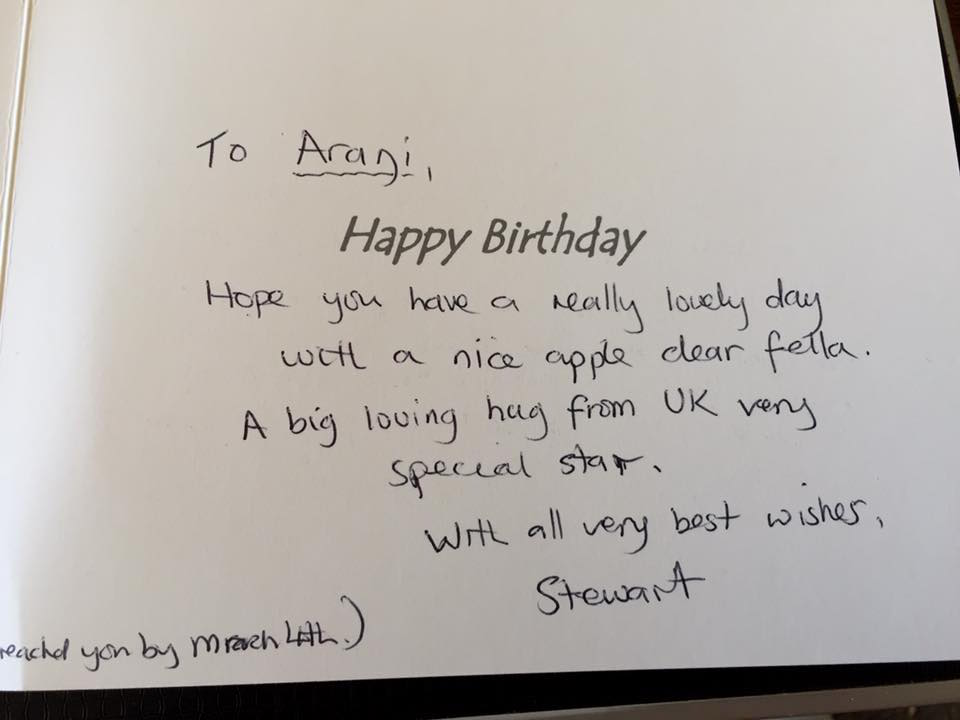 To Aragi,
Happy Birthday
Hope you have a really lovely day
with a nice apple dear fella.
A big loving hug from UK very
special star.
With all very best wishes,
Stewart
reached you by March 4th.)